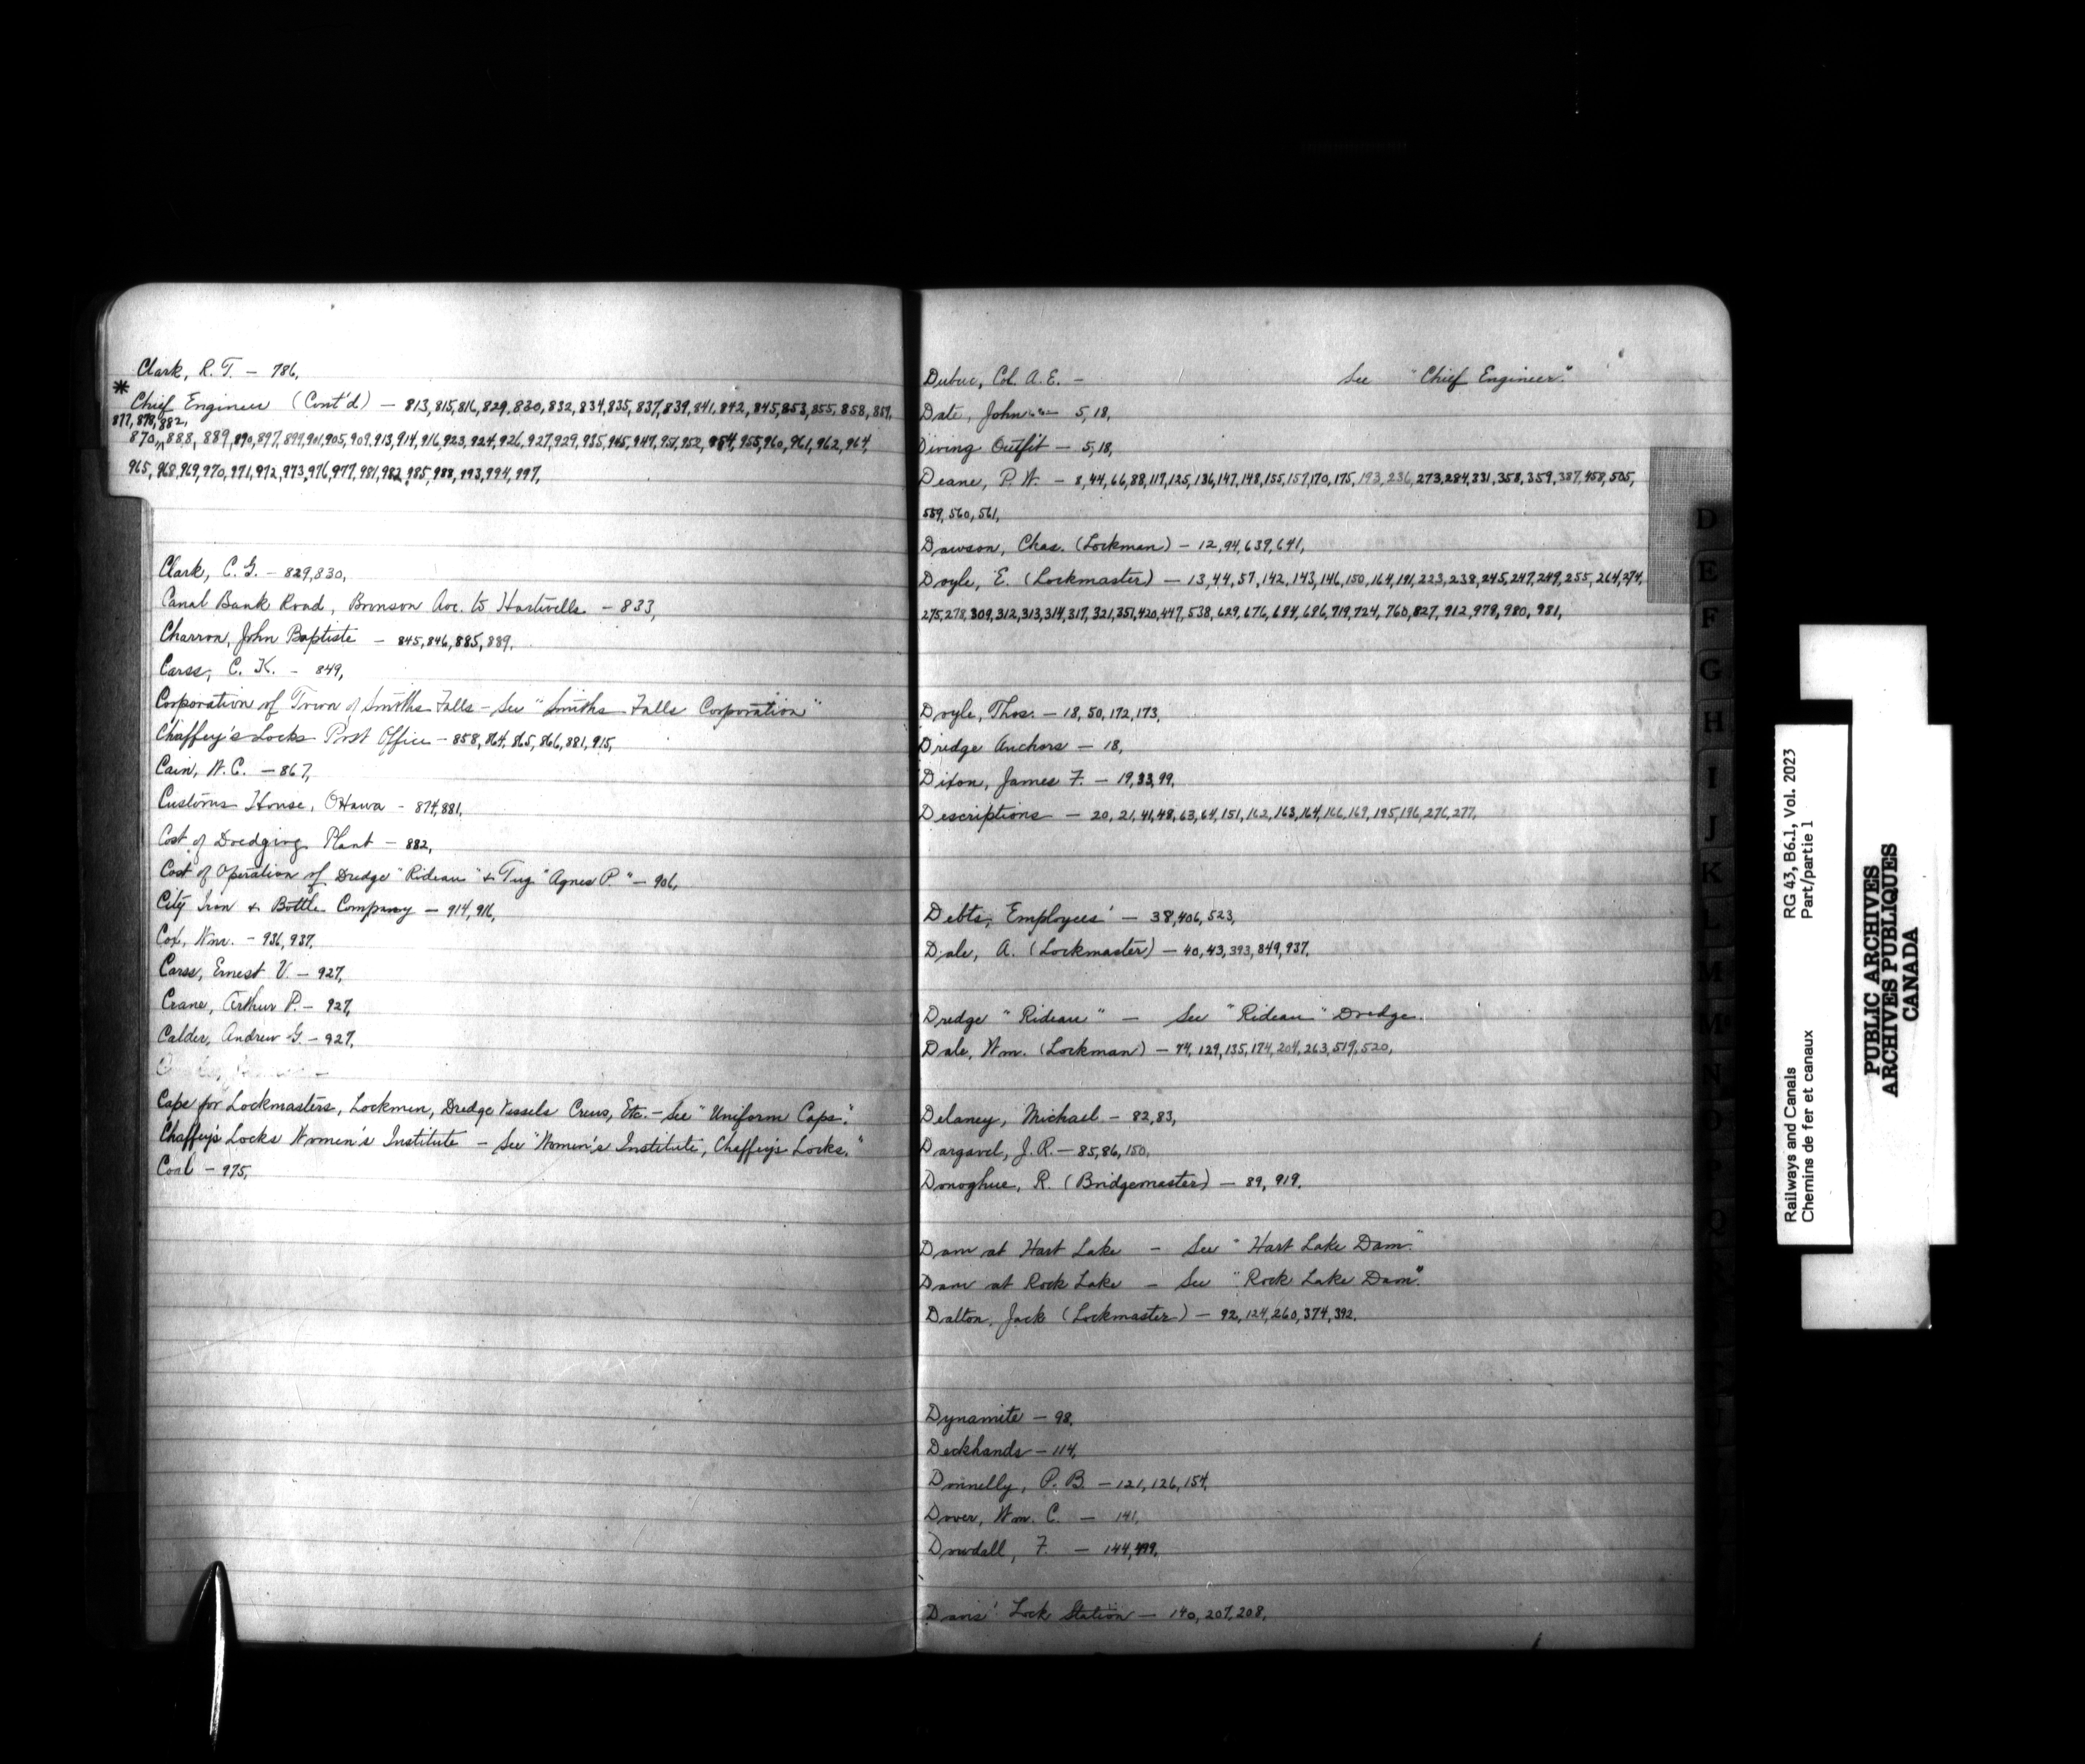 Clark, R. T. — 786,
* Chief Engineer (Cont'd) — 813, 815, 816, 829, 830, 832, 834, 835, 837, 839, 841, 842, 845, 853, 855, 858, 859,
877, 878, 882,
870, 888, 889, 890, 897, 899, 901, 905, 909, 913, 914, 916, 923, 924, 926, 927, 929, 935, 945, 947, 951, 952, 954, 955, 960, 961, 962, 964,
965, 968, 969, 970, 971, 972, 973, 976, 977, 981, 982, 985, 988, 993, 994, 997,
Clark, C. G. — 829, 830,
Canal Bank Road, Bronson Ave. to Hartwells — 833,
Charron, John Baptiste — 845, 846, 885, 889,
Carss, C. K. — 849,
Corporation of Town of Smiths Falls — See "Smiths Falls Corporation"
Chaffey's Locks Post Office — 858, 864, 865, 866, 881, 915,
Cain, W. C. — 867,
Customs House, Ottawa — 874, 881,
Cost of Dredging Plant — 882,
Cost of Operation of Dredge "Rideau" & Tug "Agnes P." — 906,
City Iron & Bottle Company — 914, 916,
Cox, Wm. — 936, 937,
Carss, Ernest V. — 927,
Crane, Arthur P. — 927,
Calder, Andrew G. — 927,
Caps for Lockmasters, Lockmen, Dredge Vessels Crews, Etc. — See "Uniform Caps."
Chaffey's Locks Women's Institute — See "Women's Institute, Chaffey's Locks."
Coal — 975,
Dubuc, Col. A. E. — See "Chief Engineer."
Date, John — 5, 18,
Diving Outfit — 5, 18,
Deane, P. W. — 8, 44, 66, 88, 117, 125, 136, 147, 148, 155, 157, 170, 175, 193, 236, 273, 284, 331, 358, 359, 387, 458, 505,
559, 560, 561,
Dawson, Chas. (Lockman) — 12, 94, 639, 641,
Doyle, E. (Lockmaster) — 13, 44, 57, 142, 143, 146, 150, 164, 191, 223, 238, 245, 247, 249, 255, 264, 274,
275, 278, 309, 312, 313, 314, 317, 321, 351, 420, 447, 538, 629, 676, 694, 696, 719, 724, 760, 827, 912, 979, 980, 981,
Doyle, Thos. — 18, 50, 172, 173,
Dredge Anchors — 18,
Dixon, James F. — 19, 33, 99,
Descriptions — 20, 21, 41, 48, 63, 64, 151, 162, 163, 164, 166, 169, 195, 196, 276, 277,
Debts, Employees' — 38, 406, 523,
Dale, A. (Lockmaster) — 40, 43, 393, 849, 937,
Dredge "Rideau" — See "Rideau" Dredge.
Dale, Wm. (Lockman) — 74, 129, 135, 174, 204, 263, 519, 520,
Delaney, Michael — 82, 83,
Dargavel, J. R. — 85, 86, 150,
Donoghue, R. (Bridgemaster) — 89, 919,
Dam at Hart Lake — See "Hart Lake Dam."
Dam at Rock Lake — See "Rock Lake Dam".
Dalton, Jack (Lockmaster) — 92, 124, 260, 374, 392,
Dynamite — 98,
Deckhands — 114,
Donnelly, P. B. — 121, 126, 154,
Dover, Wm. C. — 141,
Dowdall, F. — 144, 499,
Davis' Lock Station — 140, 207, 208,
D
E
F
G
H
I
J
K
L
M
N
O
P
Q
Railways and Canals RG 43, B6.1, Vol. 2023
Chemins de fer et canaux Part/partie 1
PUBLIC ARCHIVES
ARCHIVES PUBLIQUES
CANADA